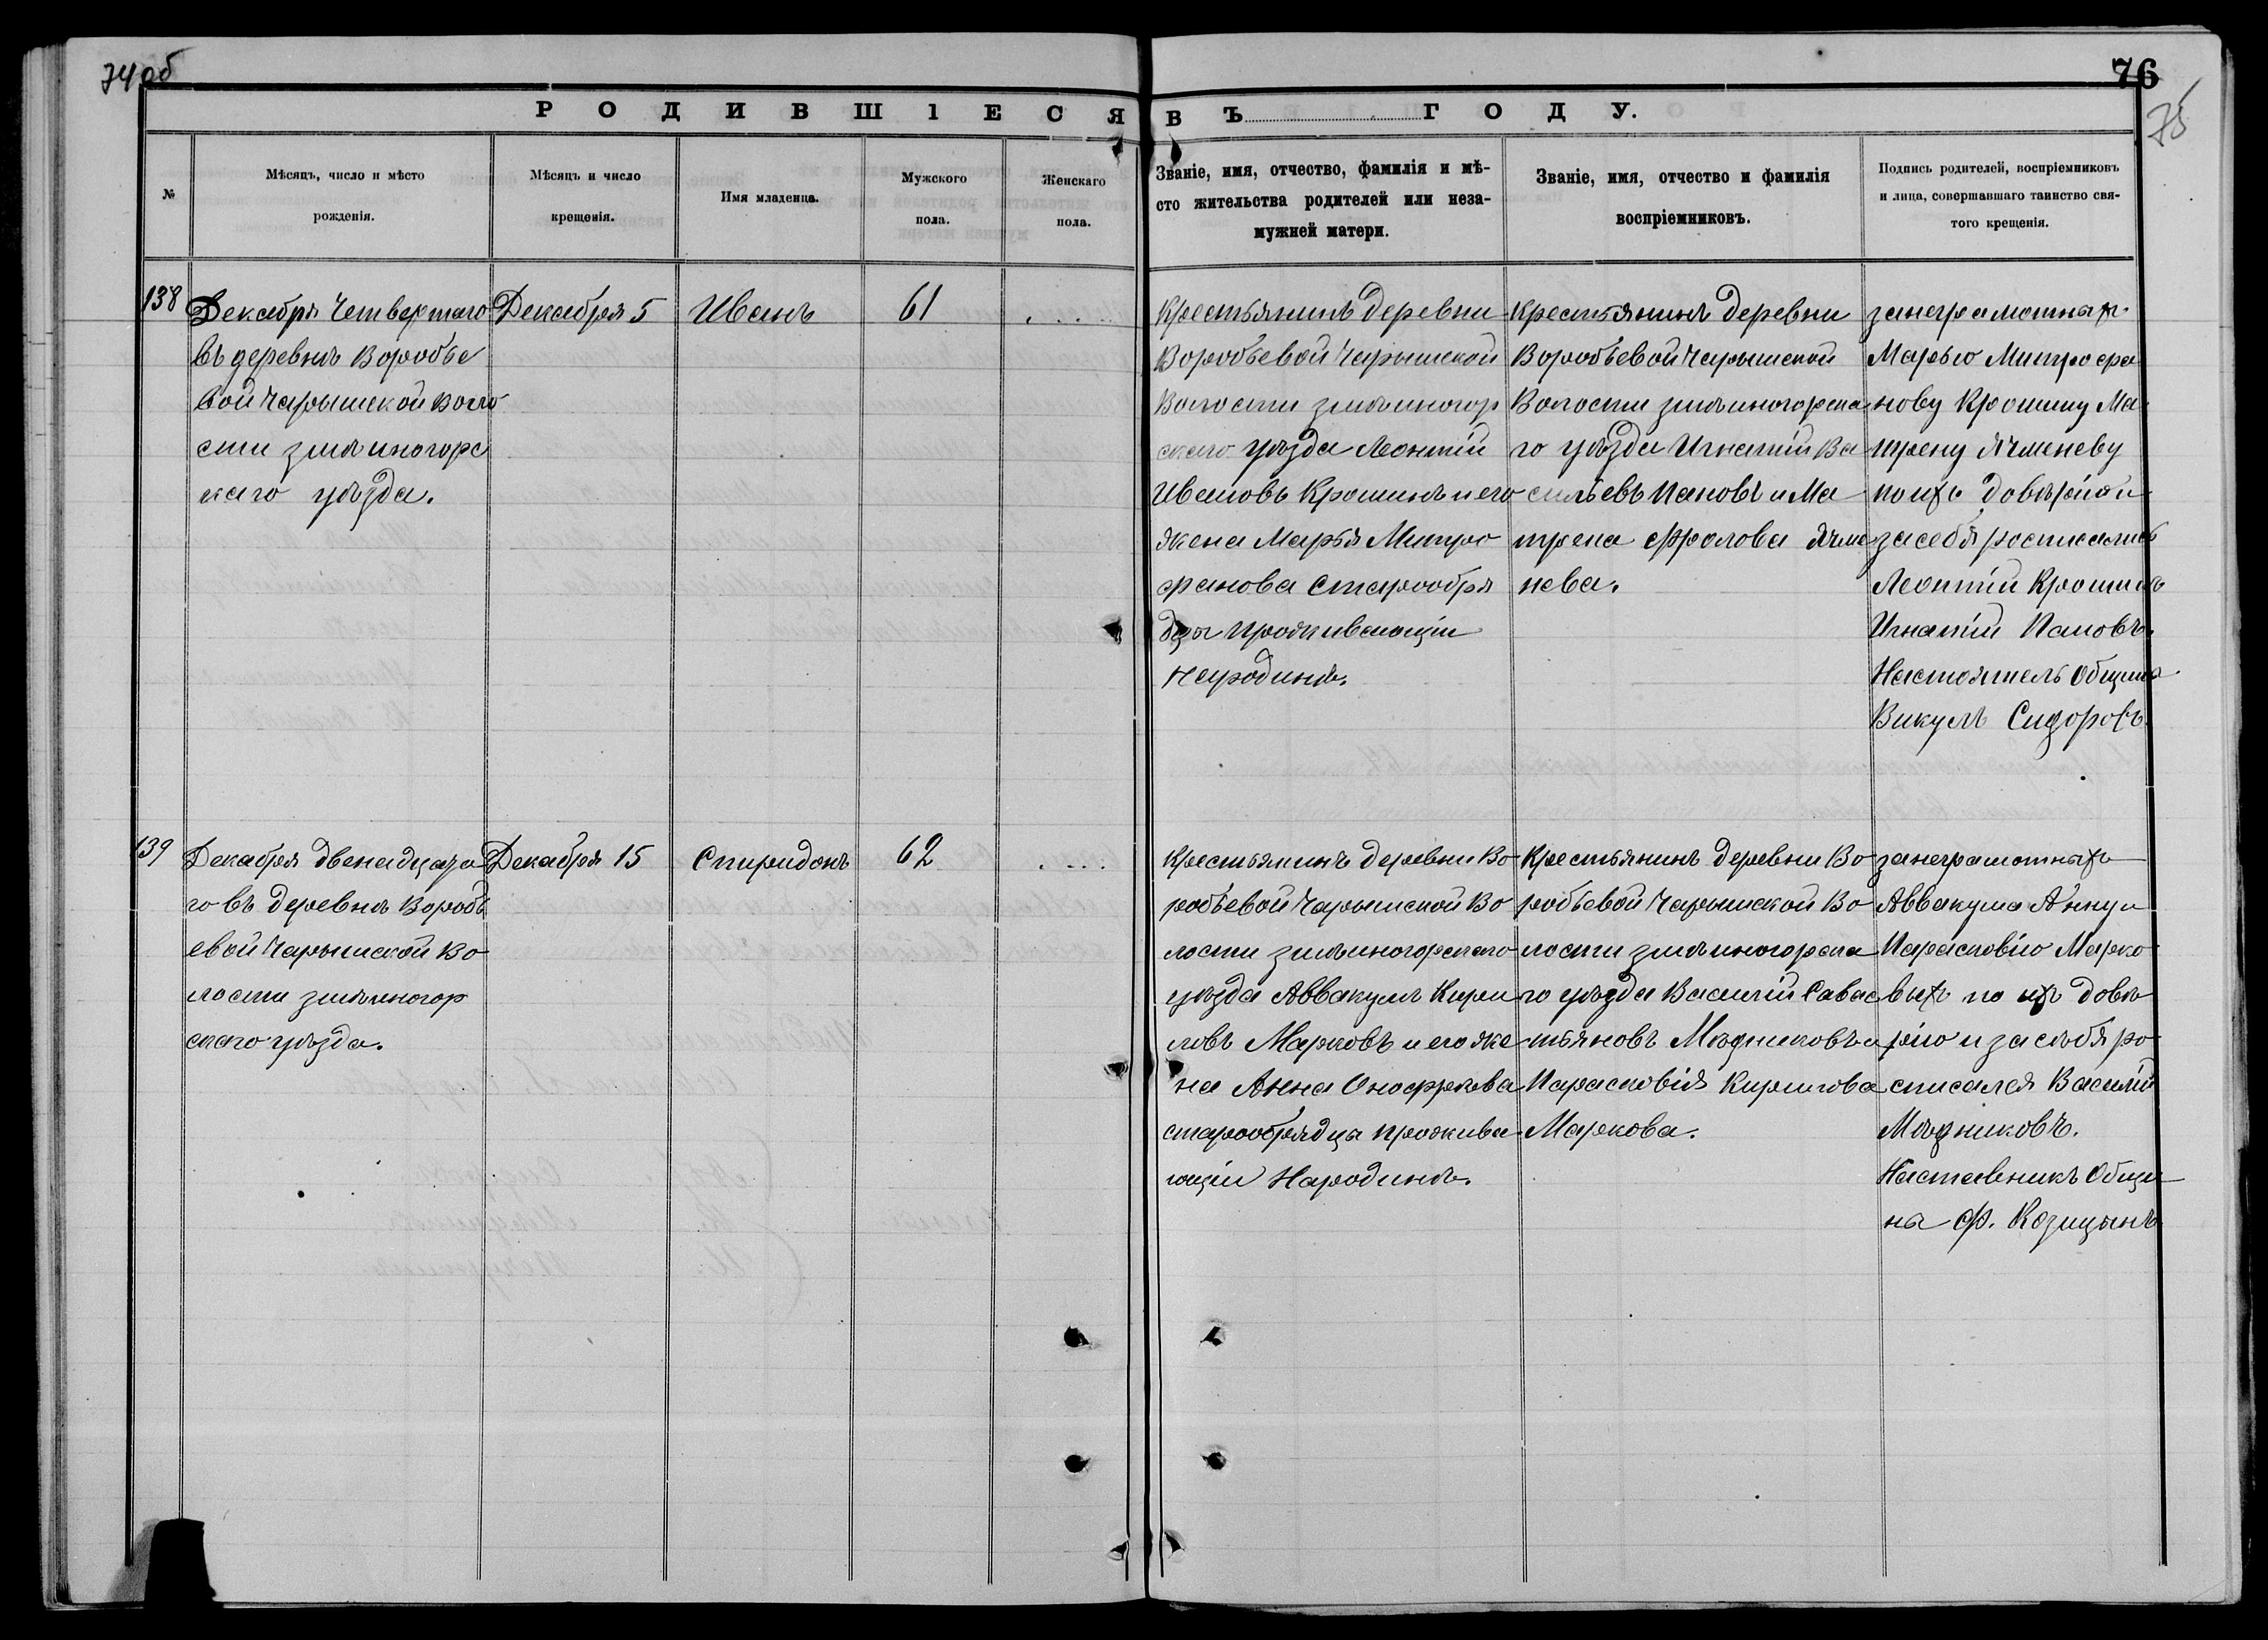 74 об
76
75
РОДИВШІЕСЯ ВЪ ГОДУ.
№
Мѣсяцъ, число и мѣсто
рожденія.
Мѣсяцъ и число
крещенія.
Имя младенца.
Мужского
пола.
Женскаго
пола.
Званіе, имя, отчество, фамилія и мѣ-
сто жительства родителей или неза-
мужней матери.
Званіе, имя, отчество и фамилія
воспріемниковъ.
Подпись родителей, воспріемниковъ
и лица, совершавшаго таинство свя-
того крещенія.
138
Декабря четвертаго
въ деревнѣ Воробье
вой Чарышской воло
сти змѣиногорс
каго уѣзда.
Декабря 5
Иванъ
61
....
Крестьянинъ деревни
Воробьевой Чарышской
Волости змѣиногор
скаго уѣзда Леонтій
Ивановъ Крошинъ и его
жена Марья Митро
фанова старообря
дцы проживающіи
на родинѣ.
Крестьянинъ деревни
Воробьевой Чарышской
Волости змѣиногорска
го уѣзда Игнатій Ва
сильевъ Пановъ и Ма
трена Фролова Ячме
нева.
за неграмотныхъ
Марью Митрофа
нову Крошину Ма
трену Ячменеву
по ихъ довѣрію и
за себя росписались
Леонтій Крошинъ
Игнатій Пановъ.
Настоятель Общины
Викулъ Сидоровъ.
139
Декабря двенадцата
го въ деревнѣ Воробь
евой Чарышской Во
лости змѣиногор
скаго уѣзда.
Декабря 15
Спиридонъ
62
....
Крестьянинъ деревни Во
робьевой Чарышской Во
лости змѣиногорскаго
уѣзда Аввакумъ Кири
ловъ Марковъ и его же
на Анна Онофрѣева
старообрядцы прожива
ющіи на родинѣ.
Крестьянинъ деревни Во
робьевой Чарышской Во
лости змѣиногорска
го уѣзда Василій Савас
тьяновъ Мѣдниковъ и
Парасковія Кирилова
Маркова.
за неграмотныхъ
Аввакума Анну и
Парасковію Марко
выхъ по ихъ довѣ
рію и за себя ро
списался Василій
Мѣдниковъ.
Наставникъ Общи
ны Ф. Козицынъ